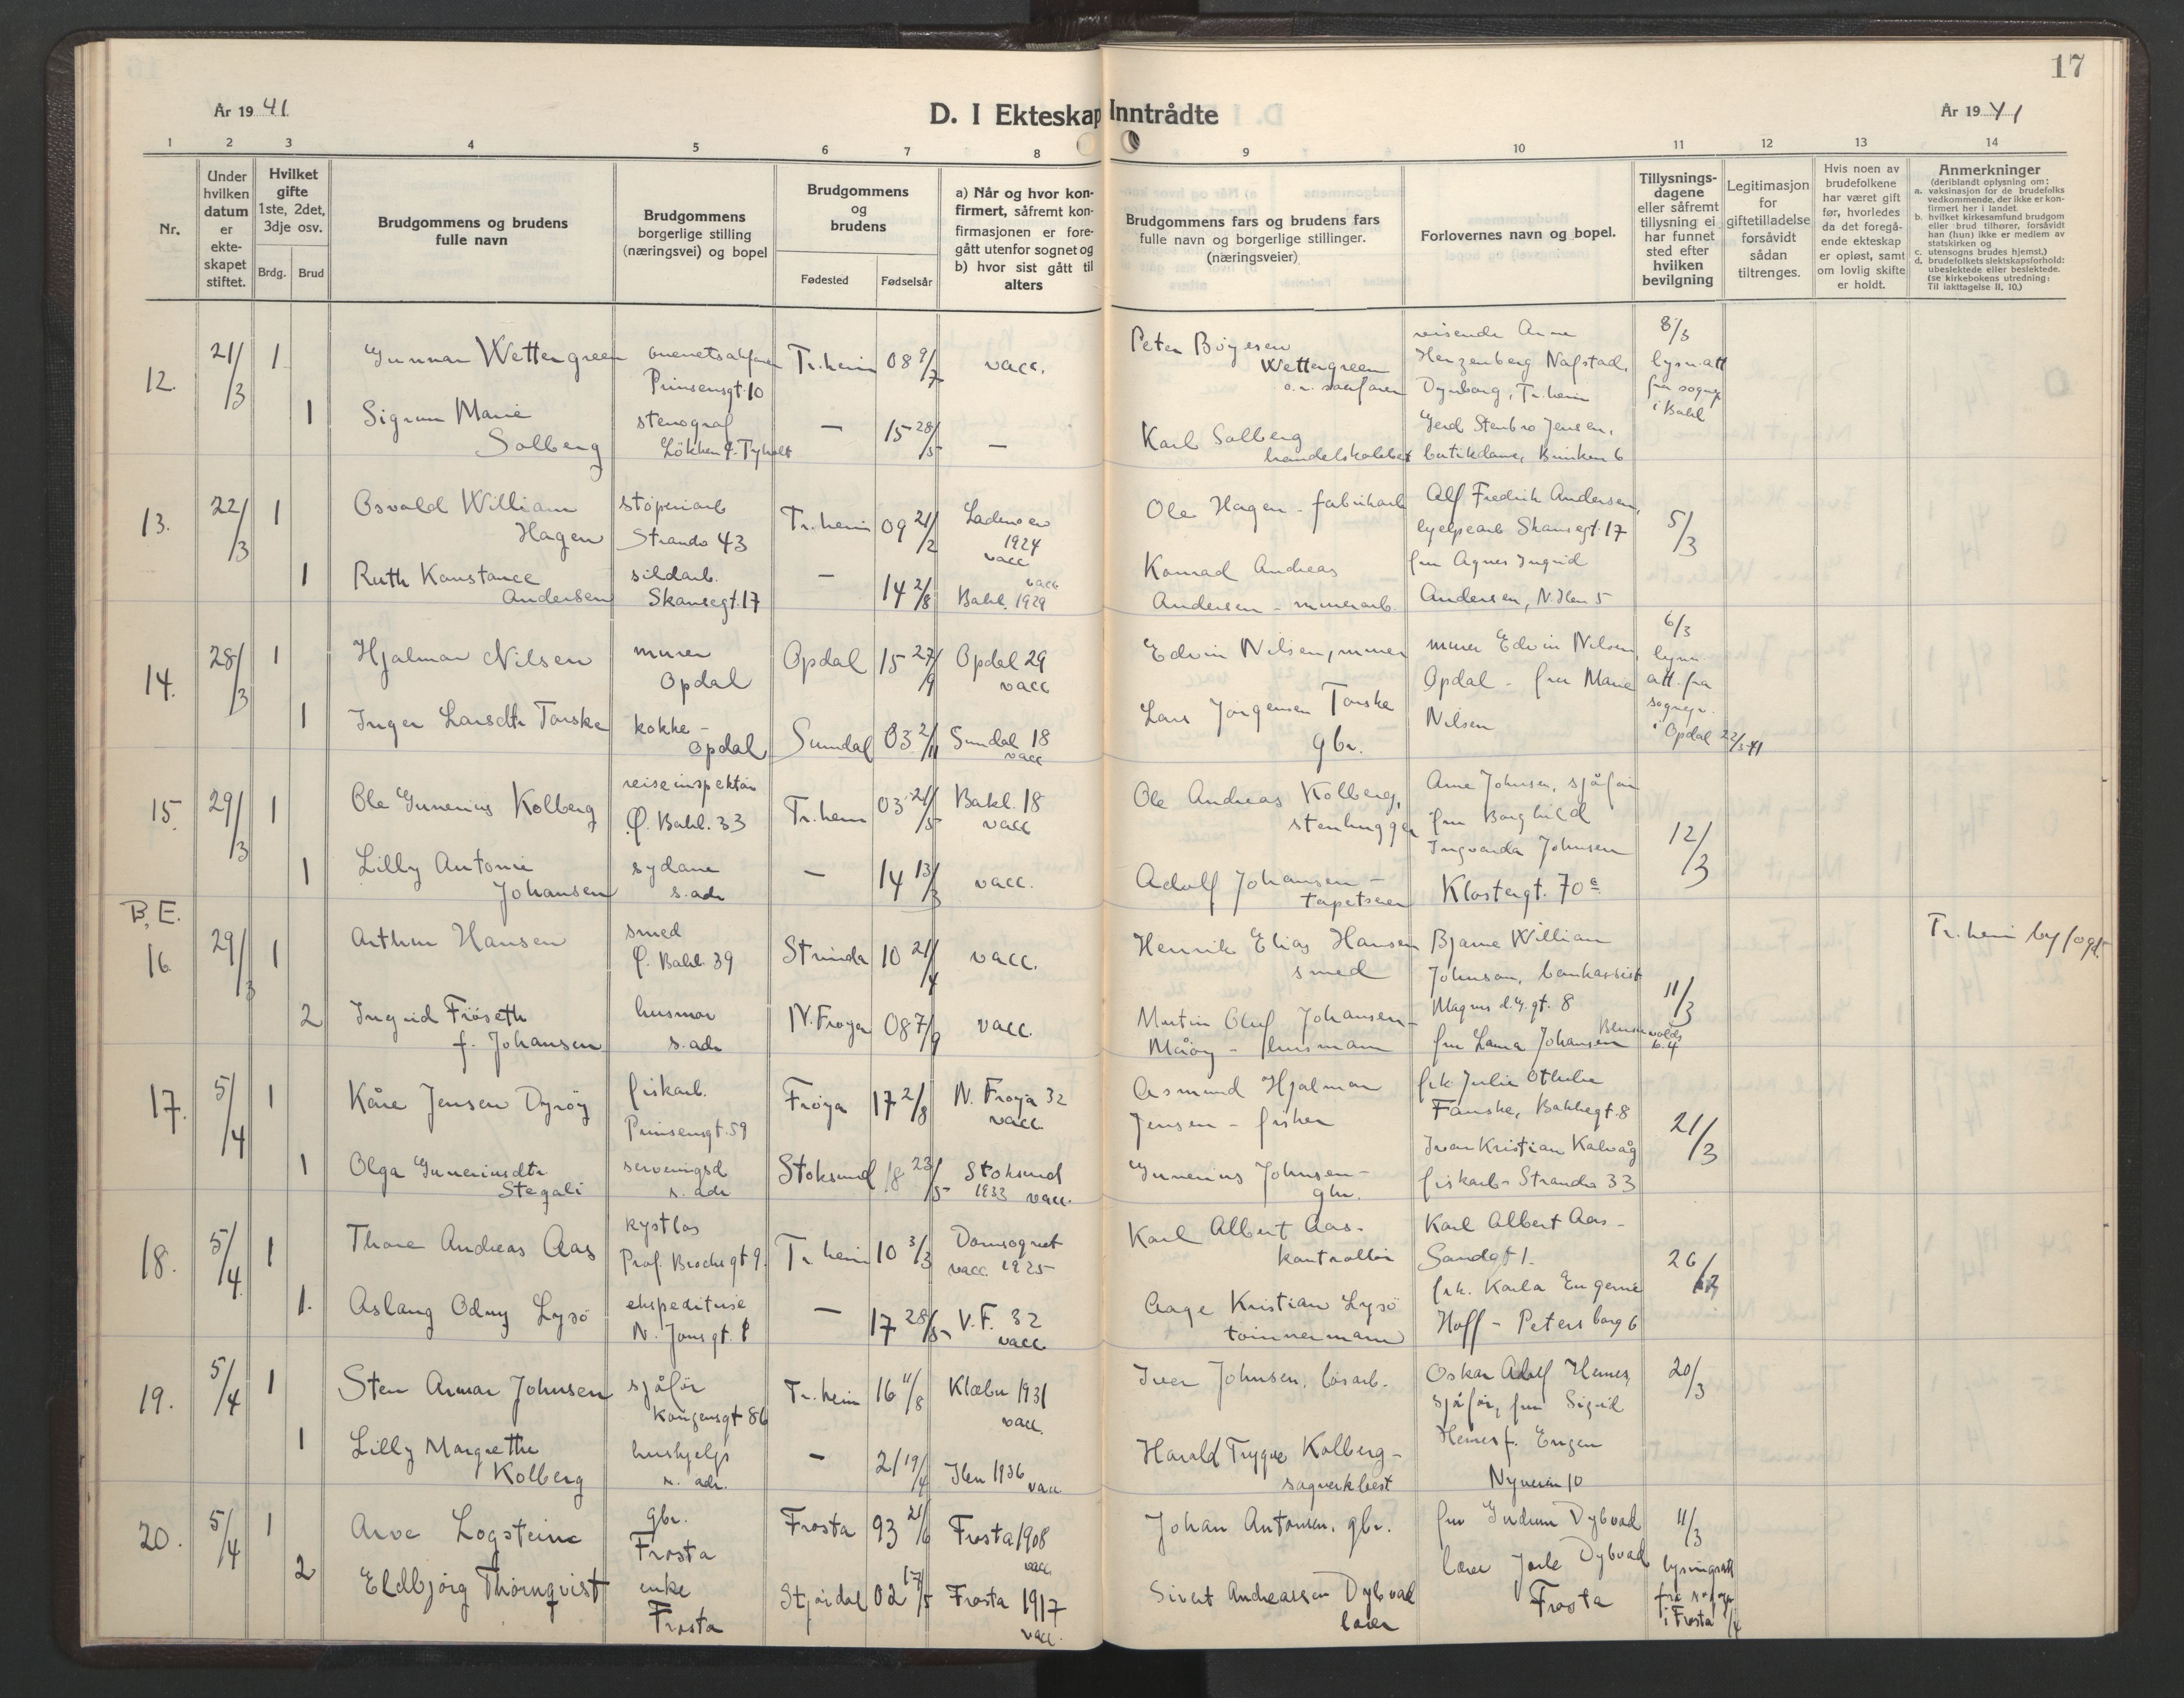 17
År 1941
D. I Ekteskap Inntrådte
År 1941
1 2 3 4 5 6 7 8 9 10 11 12 13 14
Nr.
Under hvilken datum er ekte-skapet stiftet.
Hvilket gifte 1ste, 2det, 3dje osv.
Brdg. Brud
Brudgommens og brudens fulle navn
Brudgommens borgerlige stilling (næringsvei) og bopel
Brudgommens og brudens
Fødested Fødselsår
a) Når og hvor kon-firmert, såfremt kon-firmasjonen er fore-gått utenfor sognet og b) hvor sist gått til alters
Brudgommens fars og brudens fars fulle navn og borgerlige stillinger. (næringsveier)
Forlovernes navn og bopel.
Tillysnings-dagene eller såfremt tillysning ei har funnet sted efter hvilken bevilgning
Legitimasjon for giftetilladelse forsåvidt sådan tiltrenges.
Hvis noen av brudefolkene har været gift før, hvorledes da det foregå-ende ekteskap er opløst, samt om lovlig skifte er holdt.
Anmerkninger
(deriblandt oplysning om:
a. vaksinasjon for de brudefolks vedkommende, der ikke er kon-firmert her i landet
b. hvilket kirkesamfund brudgom eller brud tilhører, forsåvidt han (hun) ikke er medlem av statskirken og
c. utensogns brudes hjemst.)
d. brudefolkets slektskapsforhold: ubeslektede eller beslektede. (se kirkebokens utredning: Til iakttagelse II, 10.)
12. 21/3 1 Gunnar Wettergreen
Prinsensgt. 10
Tr.heim 08 9/7 vacc.
Peter Böyesen
Wettergreen
reisende Arne
Herzenberg Nafstad,
Dynborg, Tr.heim
8/3
lysn.att
fra sognepr
i Bakl
1 Sigrun Marie
Solberg
stenograf
Løkken p. Tyholt
— 15 28/5 —
Karl Solberg
Gerd Stenbro Jensen,
butikdame, Brinken 6
13. 22/3 1 Osvald William
Hagen
støperiarb
Strandv 43
Tr.heim 09 21/2
Lademoen
1924
vacc
Ole Hagen - fabrikarb
Alf Fredrik Andersen,
hjelpearb Skansegt. 17
5/3
1 Ruth Konstance
Andersen
sildarb.
Skansegt. 17
— 14 2/8
vacc
Bakl. 1929
Konrad Andreas
Andersen - murerarb.
fru Agnes Ingrid
Andersen, N. Ilen 5
14. 28/3 1 Hjalmar Nilsen
murer
Opdal
Opdal 15 27/9
Opdal 29
vacc
Edvin Nilsen, murer
murer Edvin Nilsen,
Opdal - fru Marie
Nilsen
6/3
lysn.
att. fra
sognepr.
i Opdal 22/3-41
1 Inger Larsdtr Torske
kokke -
Opdal
Sundal 03 2/11
Sundal 18
vacc
Lars Jørgensen Torske
gbr.
15. 29/3 1 Ole Gunerius Kolberg
reiseinspektør
Ø. Bakl. 33
Tr.heim 03 21/5
Bakl. 18
vacc
Ole Andreas Kolberg,
stenhugger
Arne Johnsen, sjåfør
fru Borghild
Ingvarda Johnsen
Klostergt. 70a
12/3
1 Lilly Antonie
Johansen
sydame
s. adr
— 14 13/3 vacc.
Adolf Johansen -
tapetserer
B.E.
16. 29/3 1 Arthur Hansen
smed
Ø. Bakl. 39
Strinda 10 21/4 vacc.
Henrik Elias Hansen
smed
Bjarne William
Johnsen, bankassist
Magnus d. G. gt. 8
11/3
Tr.heim byfogd.
2 Ingrid Fröseth
f. Johansen
husmor
s. adr
N. Frøya 08 7/9 vacc.
Martin Oluf Johansen -
Måøy - husmann
fru Laura Johansen
17. 5/4 1 Kåre Jensen Dyrøy
fiskarb.
Prinsensgt. 59
Frøya 17 2/8
N. Frøya 32
vacc.
Asmund Hjalmar
Jensen - fisker
frk Julie Othelie
Fanske, Bakkegt. 8
Ivar Kristian Kalvåg
fiskarb - Strandv 33
21/3
1 Olga Guneriusdtr
Stegali
serveringsd
s. adr
Stoksund 18 23/5
Stoksund
1933 vacc.
Gunerius Johnsen -
gbr.
18. 5/4 1 Thore Andreas Aas
kystlos
Prof. Brochsgt 9.
Tr.heim 10 3/3
Domsognet
vacc. 1925
Karl Albert Aas -
kontrollør
Karl Albert Aas -
Sandgt 1.
frk. Karla Eugenie
Hoff - Petersborg 6
26/
1. Aslaug Odny Lysö
ekspeditrise
N. Jonsgt. 1
— 17 28/5
V.F. 32
vacc.
Aage Kristian Lysö
tömmermann
19. 5/4 1 Sten Armar Johnsen
sjåfør
Kongensgt 86
Tr.heim 16 11/8
Klæbu 1931
vacc.
Iver Johnsen, løsarb.
Oskar Adolf Hernes,
sjåfør, fru Sigrid
Hernes f. Engen
Nyveien 10
20/3
1 Lilly Margrethe
Kolberg
hushjelp
s. adr.
— 21 19/4
Ilen 1936 vacc
Harald Trygve Kolberg -
sagverkbest
20. 5/4 1 Arve Logsteine
gbr.
Frosta
Frosta 93 21/6
Frosta 1908
vacc.
Johan Antonsen, gbr.
fru Gudrun Dybvad
lærer Jarle Dybvad
Frosta
11/3
lysningsatt
fra sognepr.
i Frosta /4
2 Eldbjörg Thörnqvist
enke
Frosta
Stjørdal 02 17/5
Frosta 1917
vacc.
Sivert Andreassen Dybvad
lærer